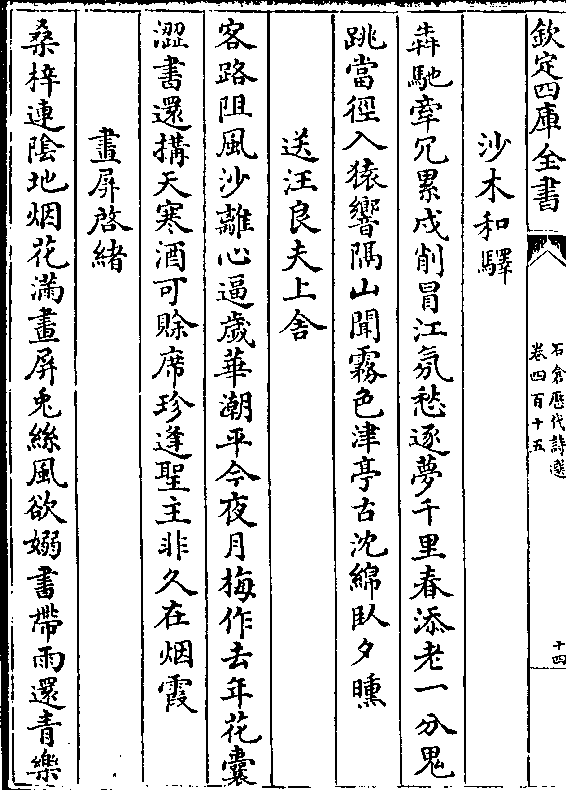 欽定四庫全書
石倉歷代詩選
卷四百十五
十四
沙木和驛
犇馳牽冗累戍削冒江氛愁逐夢千里春添老一分鬼
跳當徑入猿響隔山聞霧色津亭古沈綿臥夕曛
送汪良夫上舍
客路阻風沙離心逼歲華潮平今夜月梅作去年花囊
澀書還搆天寒酒可賒席珍逢聖主非久在烟霞
畫屏啓緒
桑梓連陰地烟花滿畫屏兎絲風欲嫋書帶雨還青樂